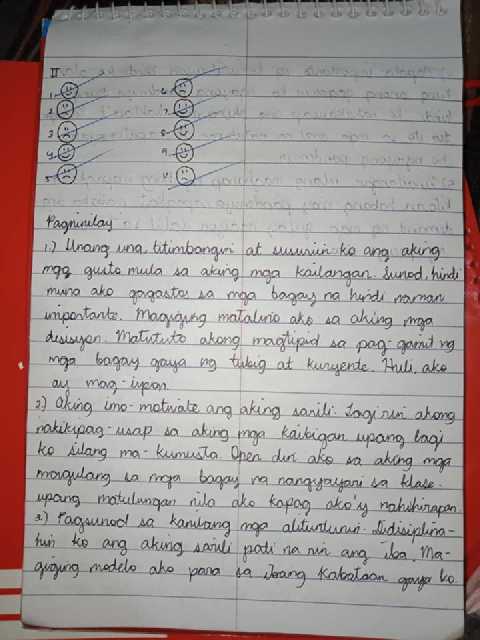 II
1.
2.
3.
4.
5.
6.
7.
8.
9.
10.
Pagninilay
1.) Unang una, titimbangin at susuriin ko ang aking
mga gusto mula sa aking mga kailangan. Sunod, hindi
muna ako gagastos sa mga bagay na hindi naman
importante. Magiging matalino ako sa aking mga
disisyon. Matututo akong magtipid sa pag-gamit ng
mga bagay gaya ng tubig at kuryente. Huli, ako
ay mag-iipon
2.) Aking imo-motivate ang aking sarili. Lagi rin akong
nakikipag-usap sa aking mga kaibigan upang lagi
ko silang ma-kumusta. Open din ako sa aking mga
magulang sa mga bagay na nangyayari sa klase.
upang matulungan nila ako kapag ako'y nahihirapan
3.) Pagsunod sa kanilang mga alituntunin. Didisiplina-
hin ko ang aking sarili pati na rin ang iba. Ma-
giging modelo ako para sa ibang kabataan gaya ko